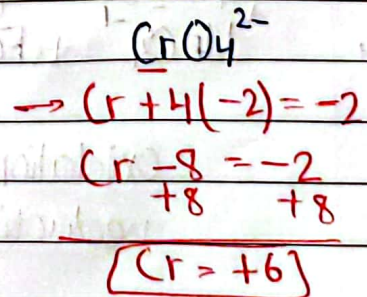 CrO4²⁻
→ Cr + 4(-2) = -2
Cr - 8 = -2
+8 +8
[Cr = +6]